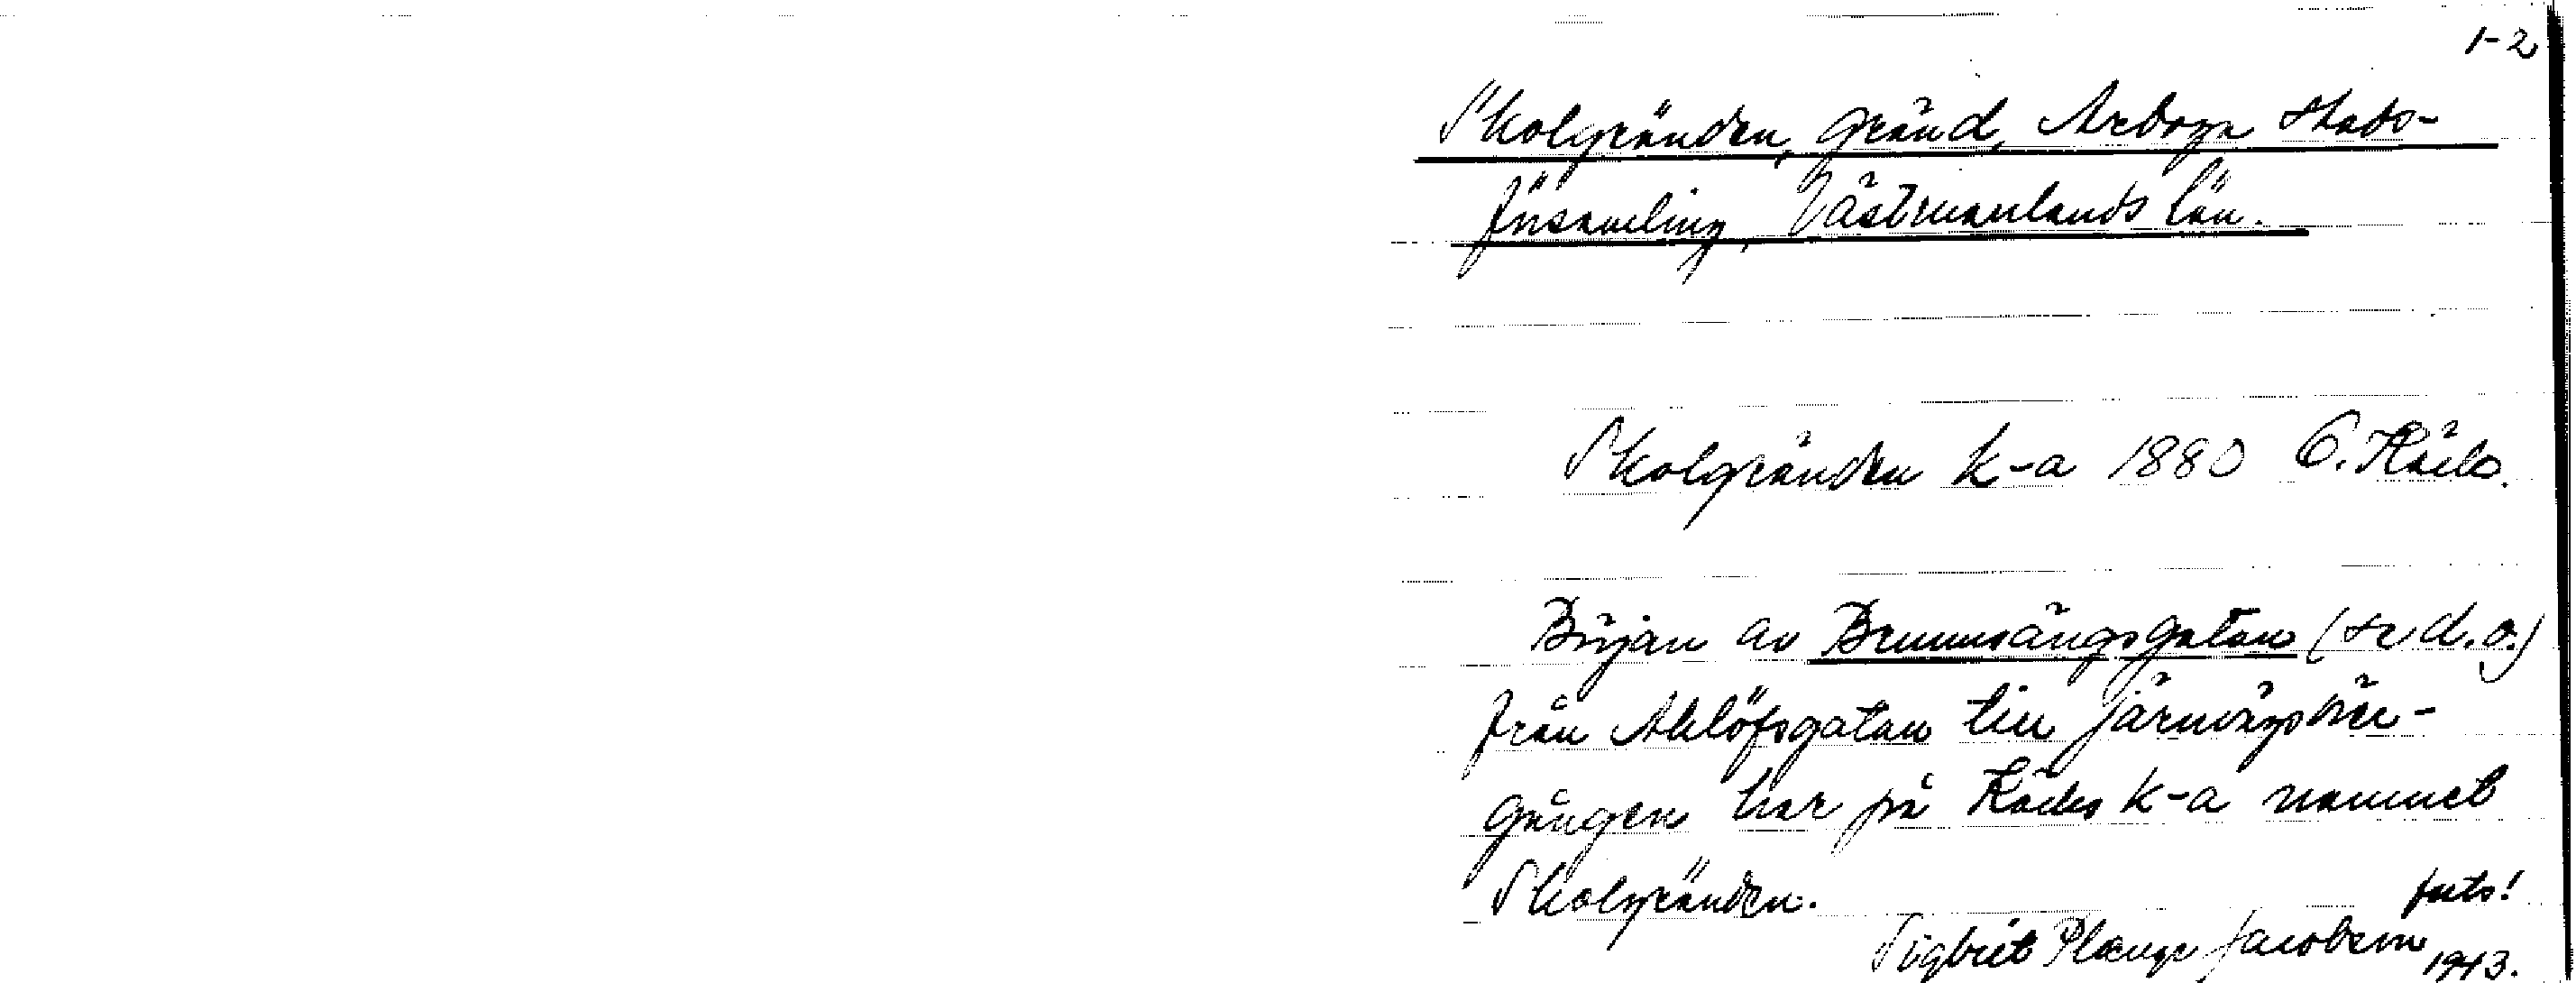 1-2
Skolgränden, gränd, Arboga stads-
församling, Västmanlands län.
Skolgränden k-a 1880
Början av Brunnsängsgatan (se d.o.)
från Ahllöfsgatan till järnvägsöver-
gången har på k-a namnet
Skolgränden.
forts!
Sigbrit Plænge Jacobson
1943.